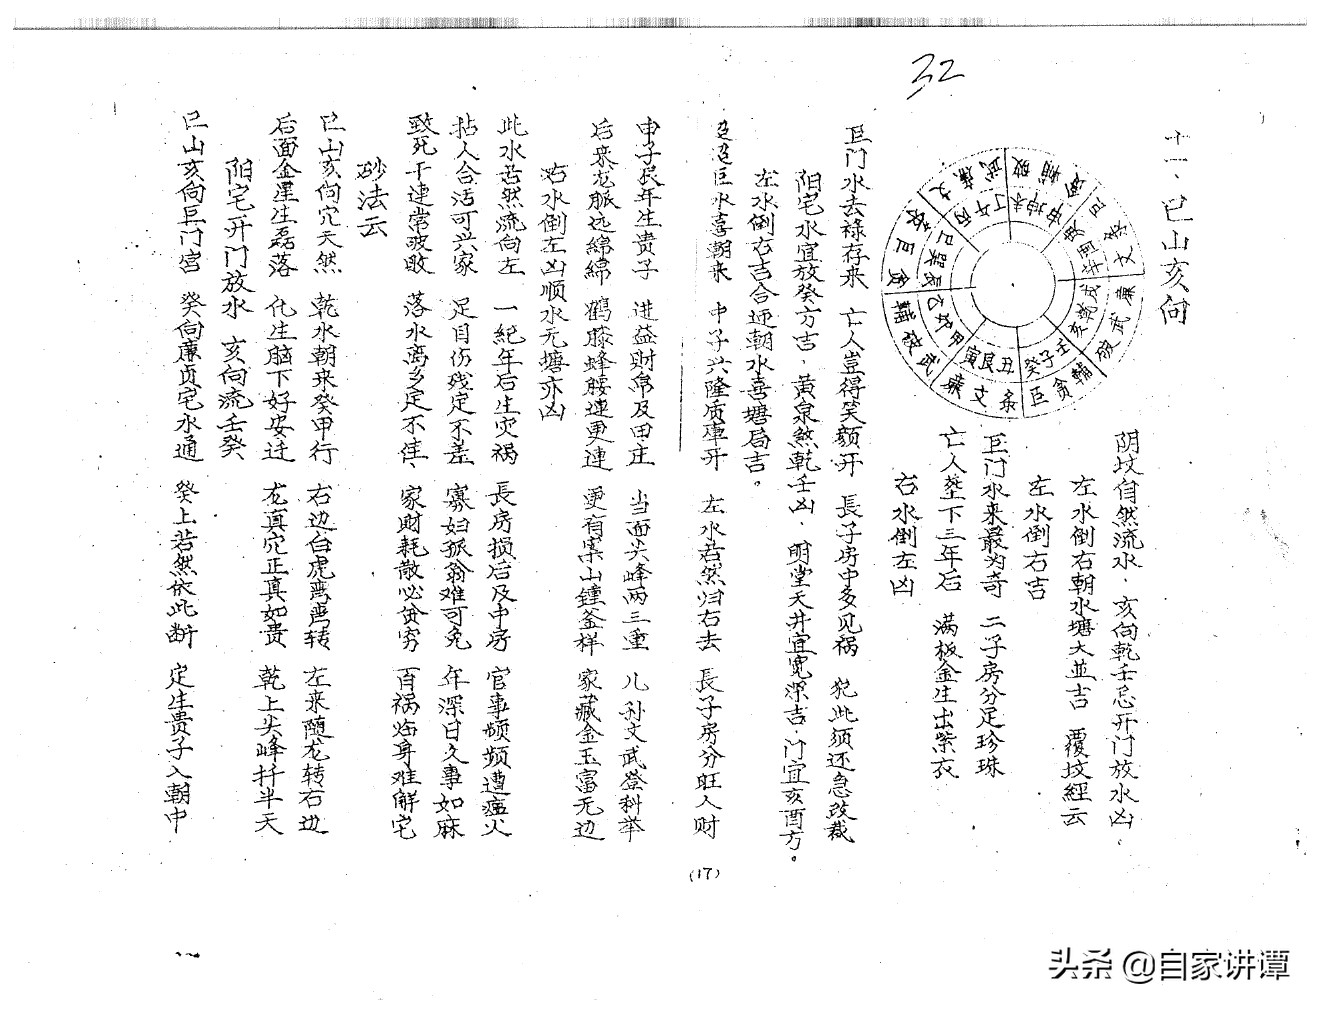 32
十一、巳山亥向
阴坟自然流水，亥向乾壬忌开门放水凶，
左水倒右朝水塘大並吉 覆坟經云
左水倒右吉
巨门水来最为奇 二子房分足珍珠
亡人塟下三年后 满板金生出紫衣
右水倒左凶
巨门水去祿存来 亡人豈得笑颜开 長子房中多见祸 犯此须还急改裁
阳宅水宜放癸方吉，黄泉煞乾壬凶，明堂天井宜宽深吉，门宜亥酉方。
左水倒右吉合迎朝水喜塘局吉。
迢迢巨水喜朝来 中子兴隆质庫开 左水若然归右去 長子房分旺人财
申子辰年生贵子 进益财帛及田庄 当面尖峰两三重 儿孙文武登科举
后来龙脈远綿綿 鹤膝蜂腰連更連 更有案山鐘釜样 家藏金玉富无边
右水倒左凶顺水无塘亦凶
此水若然流向左 一纪年后生灾祸 長房损后及中房 官事频频遭瘟火
拈人合活可兴家 足目伤残定不差 寡妇孤翁难可免 年深日久事如麻
致死干連常破败 落水离乡定不佳 家财耗散必贫穷 百祸临身难解宅
砂法云
巳山亥向穴天然 乾水朝来癸甲行 右边白虎弯弯转 左来随龙转右边
后面金星生磊落 化生脑下好安迁 龙真穴正真如贵 乾上尖峰扦半天
阳宅开门放水 亥向流壬癸
巳山亥向巨门宫 癸向廉贞宅水通 癸上若然依此断 定生贵子入朝中
(17)
巳 丙 午 丁 未 坤 申 庚 酉 辛 戌 乾 亥 壬 子 癸 丑 艮 寅 甲 卯 乙 辰 巽
头条 @自家讲谭